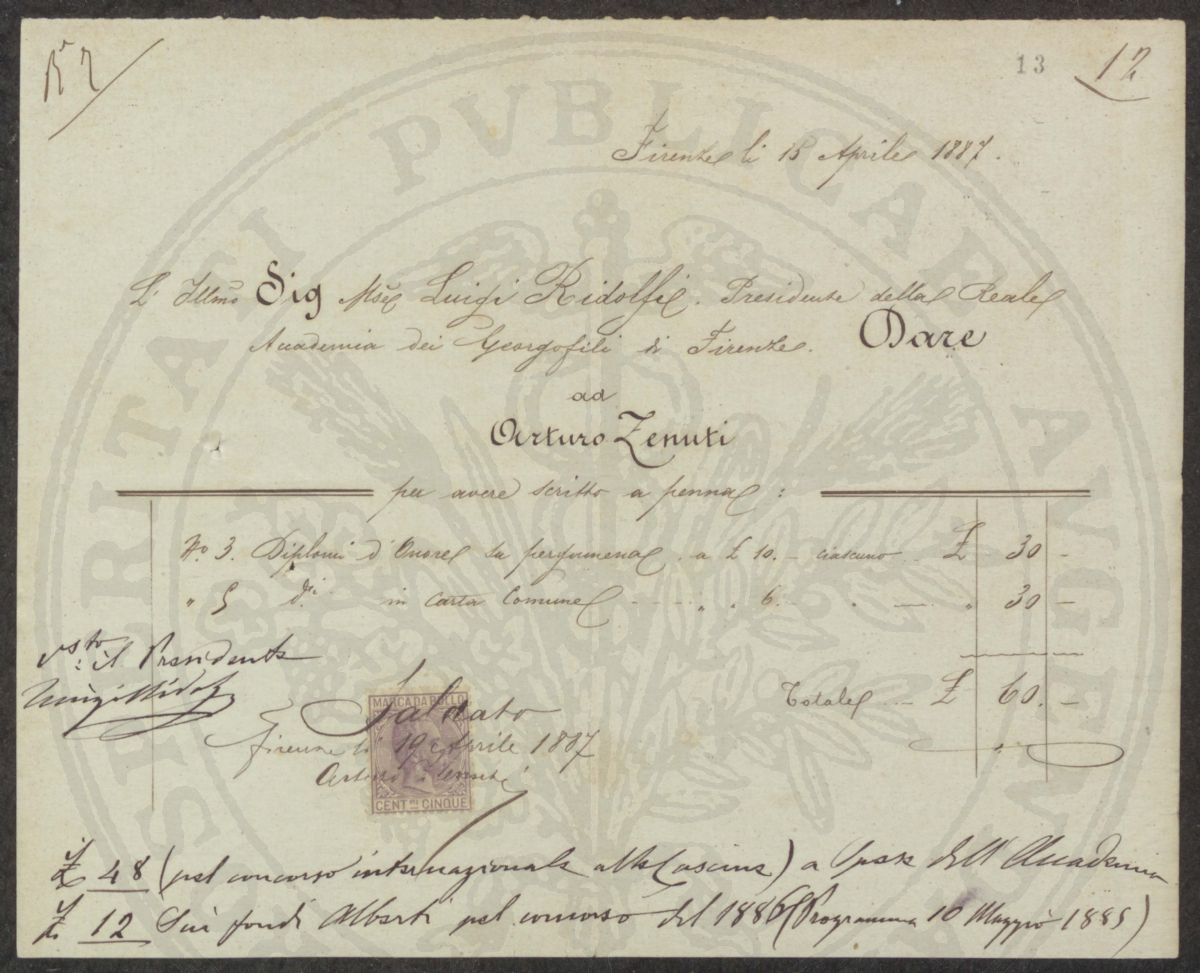 13
12
Firenze li 15 Aprile 1887.
L' Illmo Sig Mse Luigi Ridolfi. Presidente della Reale
Accademia dei Georgofili di Firenze. Dare
ad
Arturo Zenuti
per avere scritto a penna :
No. 3. Diplomi d'Onore su pergamena. a £ 10. - ciascuno £ 30 -
" 5 di in Carta Comune " " 6. " " 30 -
Visto: il Presidente
Luigi Ridolfi
Totale £ 60. -
MARCA DA BOLLO
Saldato
Firenze li 19 Aprile 1887
Arturo Zenuti
CENT.MI CINQUE
£ 48 (pel concorso internazionale alle Cascine) a spese dell' Accademia
£ 12 Sui fondi Alberti pel concorso del 1886 (Programma 10 Maggio 1885)
PROSPERITATI PVBLICAE AVGENDAE